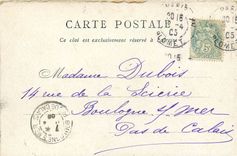 CARTE POSTALE
Ce côté est exclusivement réservé à
Madame Dubois
14 rue de la Scierie
Boulogne s/mer
Pas de Calais